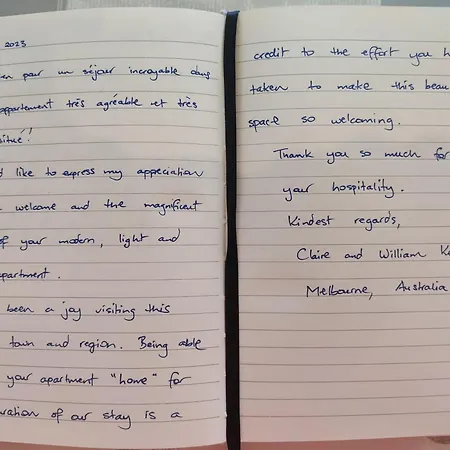 2023
en pour un séjour incroyable dans
appartement très agréable et très
situé!
d like to express my appreciation
welcome and the magnificent
of your modern, light and
apartment.
been a joy visiting this
town and region. Being able
your apartment "home" for
uration of our stay is a
credit to the effort you h
taken to make this beau
space so welcoming.
Thank you so much for
your hospitality.
Kindest regards,
Claire and William K
Melbourne, Australia